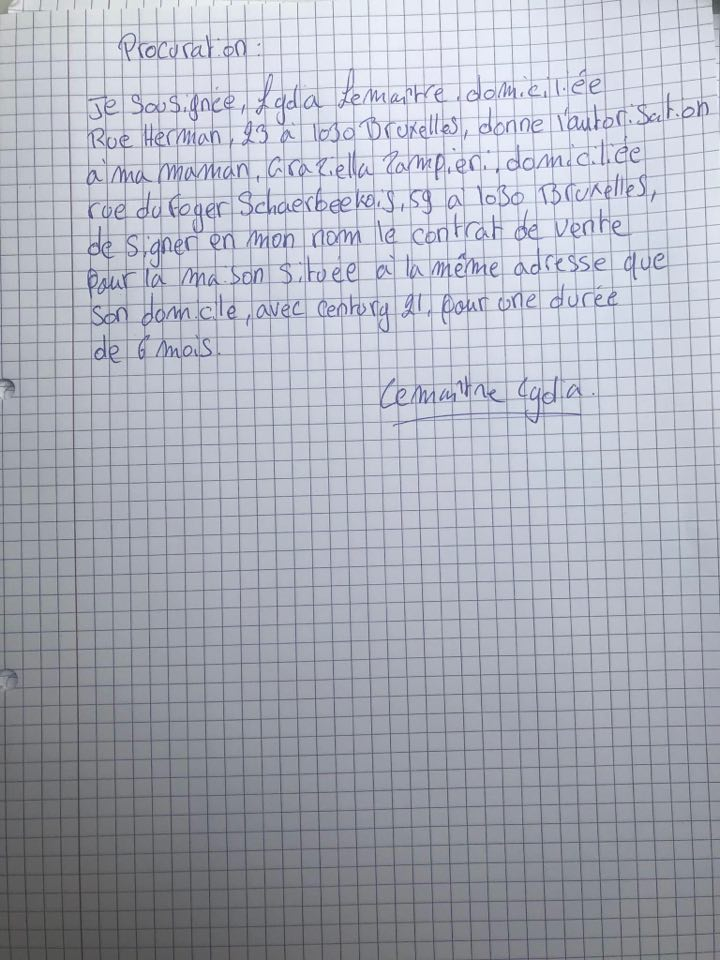 Procuration :
Je sousignée, Lyda Lemaître, domiciliée
Rue Herman, 23 à 1030 Bruxelles, donne l'autorisation
à ma maman, Graziella Zampieri, domiciliée
rue du Foyer Schaerbeekois, 59 à 1030 Bruxelles,
de signer en mon nom le contrat de vente
pour la maison située à la même adresse que
son domicile, avec Century 21, pour une durée
de 6 mois.
Lemaître Lyda.